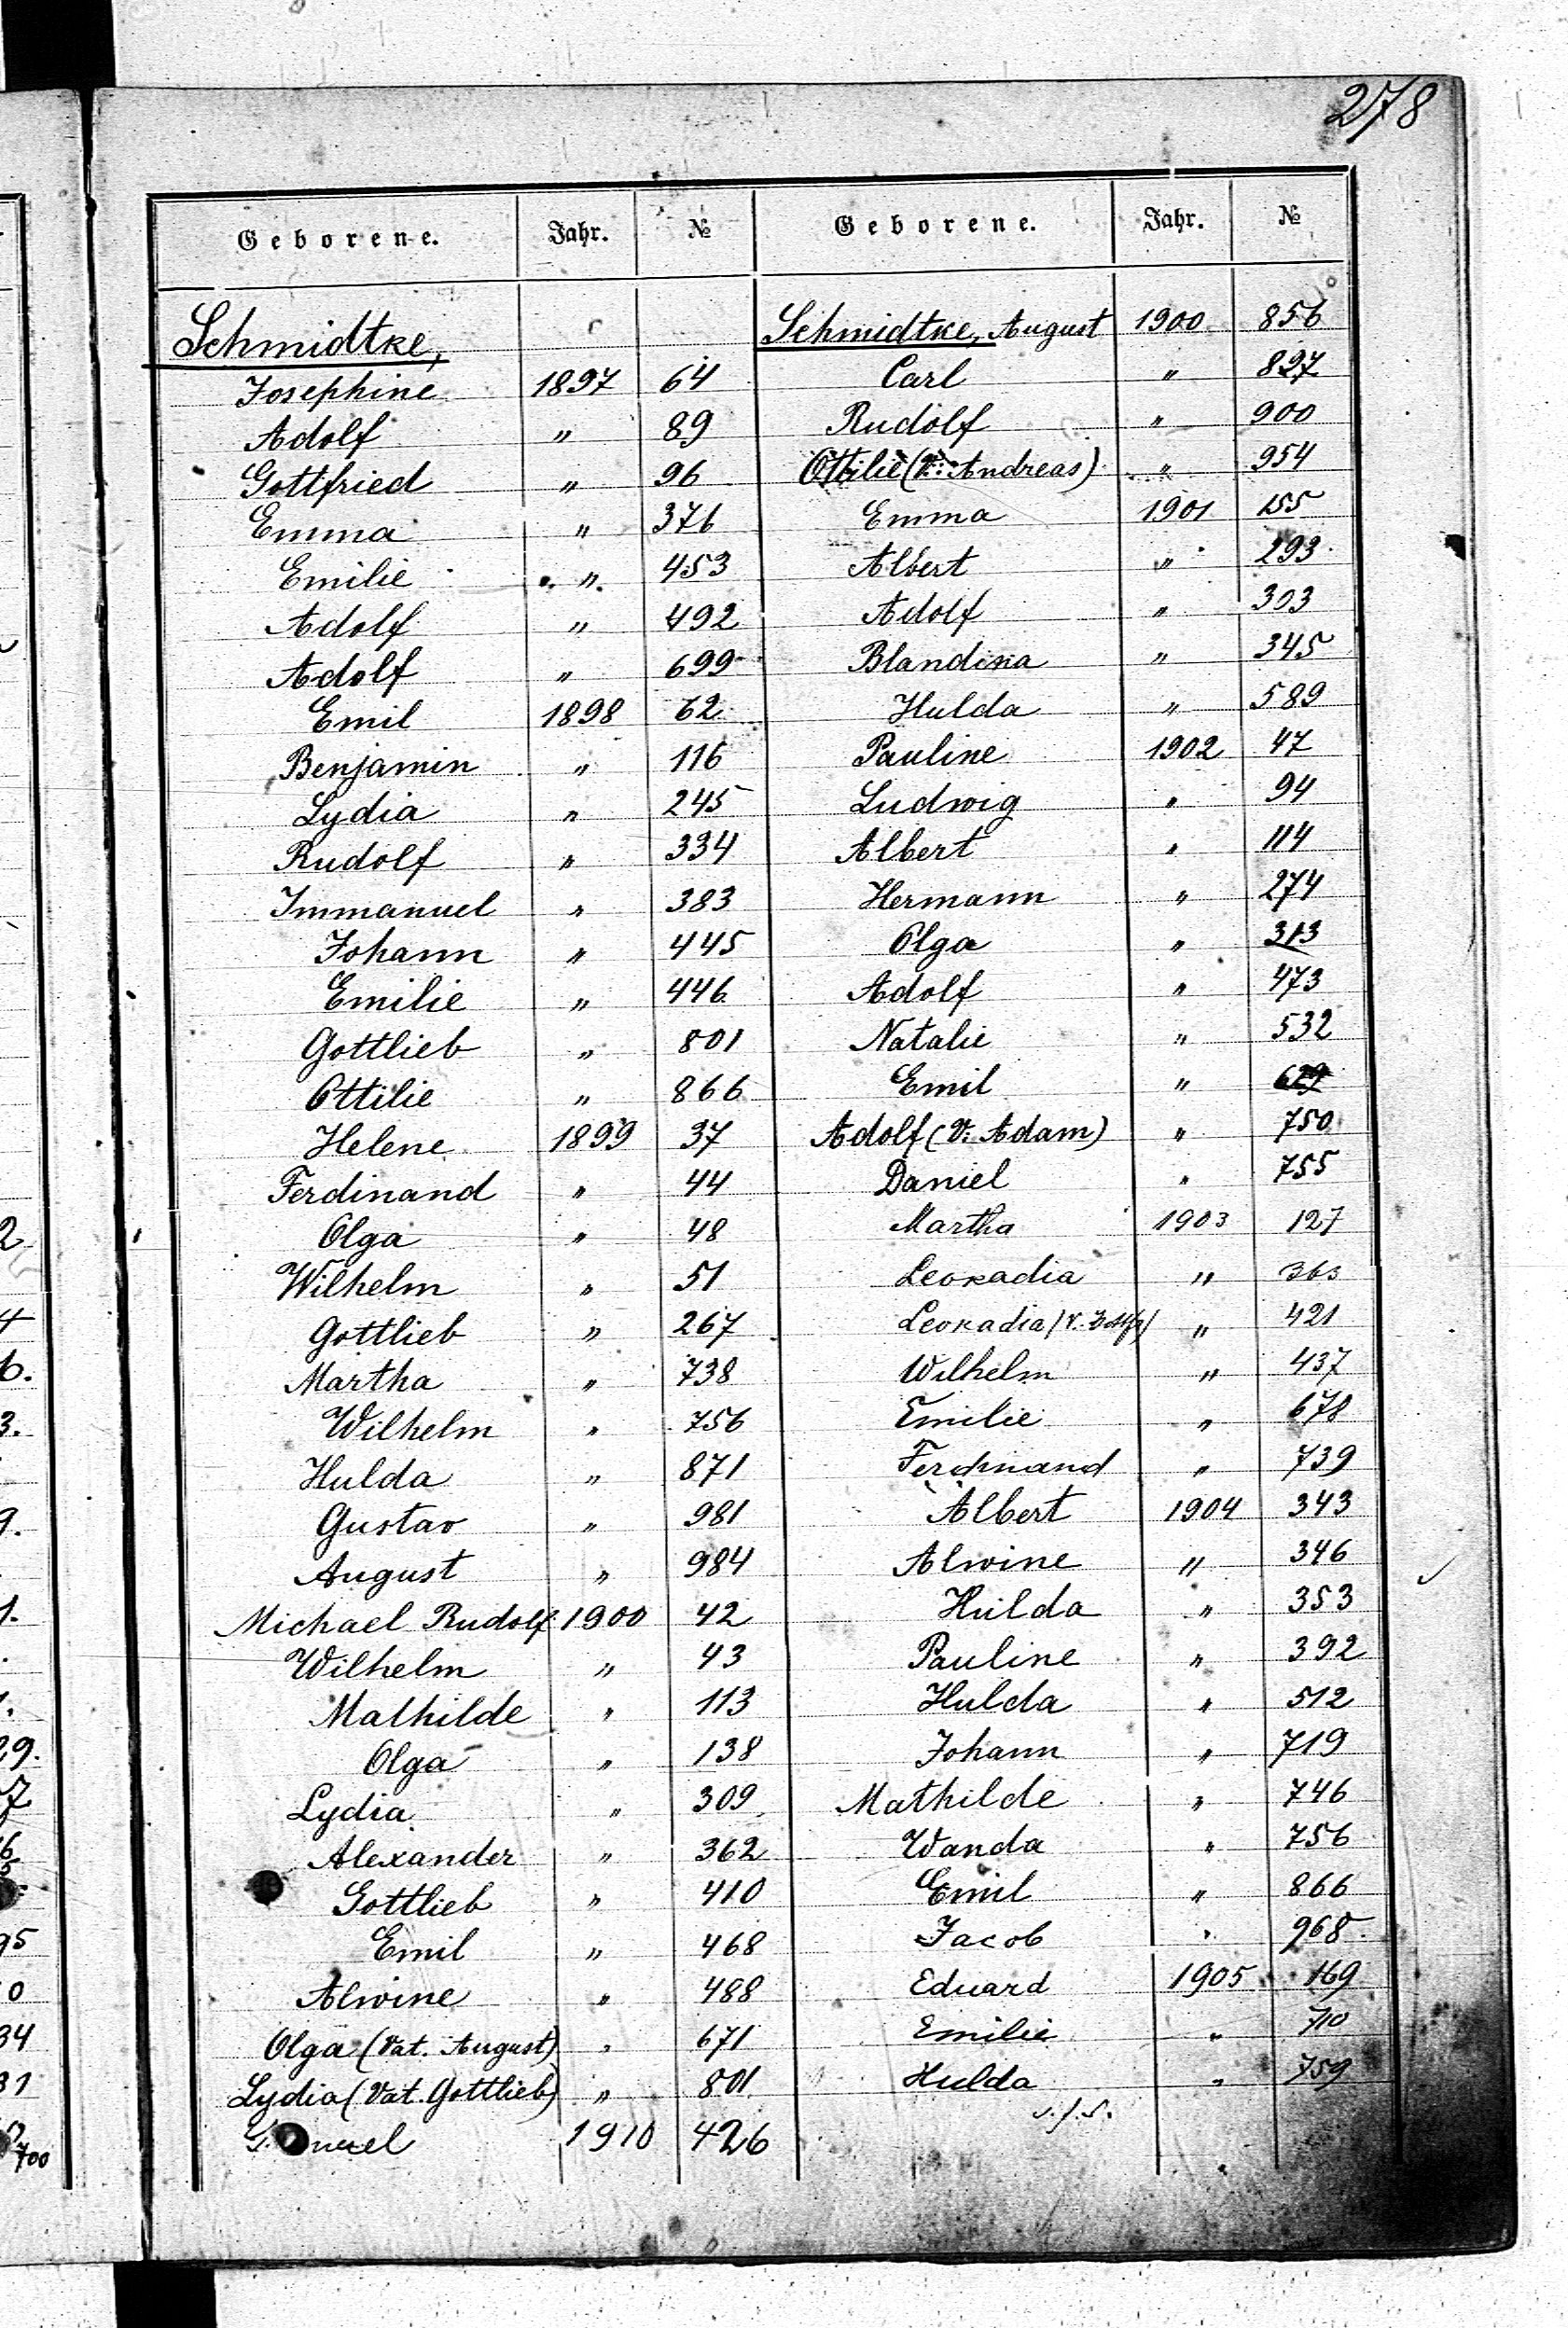 278
Geborene. Jahr. № Geborene. Jahr. №
Schmidtke,
Josephine 1897 64
Adolf " 89
Gottfried " 96
Emma " 376
Emilie " 453
Adolf " 492
Adolf " 699
Emil 1898 62
Benjamin " 116
Lydia " 245
Rudolf " 334
Immanuel " 383
Johann " 445
Emilie " 446
Gottlieb " 801
Ottilie " 866
Helene 1899 37
Ferdinand " 44
Olga " 48
Wilhelm " 51
Gottlieb " 267
Martha " 738
Wilhelm " 756
Hulda " 871
Gustav " 981
August " 984
Michael Rudolf 1900 42
Wilhelm " 43
Mathilde " 113
Olga " 138
Lydia " 309
Alexander " 362
Gottlieb " 410
Emil " 468
Alwine " 488
Olga (Vat. August) " 671
Lydia (Vat. Gottlieb) " 801
1910 426
Schmidtke, August 1900 856
Carl " 897
Rudolf " 900
Ottilie (V: Andreas) " 954
Emma 1901 155
Albert " 293
Adolf " 303
Blandina " 345
Hulda " 589
Pauline 1902 47
Ludwig " 94
Albert " 114
Hermann " 274
Olga " 313
Adolf " 473
Natalie " 532
Emil "
Adolf (V: Adam) " 750
Daniel " 755
Martha 1903 127
Leokadia " 363
Leokadia " 421
Wilhelm " 437
Emilie " 678
Ferdinand " 739
Albert 1904 343
Alwine " 346
Hulda " 353
Pauline " 392
Hulda " 512
Johann " 719
Mathilde " 746
Wanda " 756
Emil " 866
Jacob " 968
Eduard 1905 169
Emilie " 710
Hulda " 759